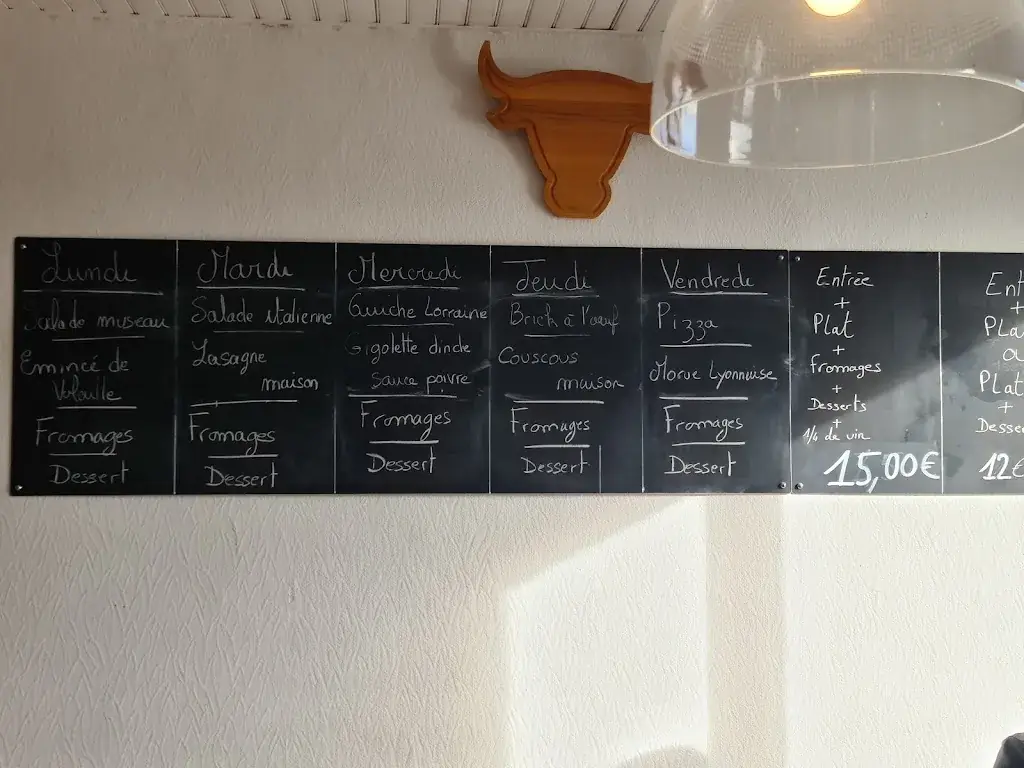 Lundi
Salade museau
Emincé de
Volaille
Fromages
Dessert
Mardi
Salade italienne
Lasagne
maison
Fromages
Dessert
Mercredi
Quiche Lorraine
Gigolette dinde
Sauce poivre
Fromages
Dessert
Jeudi
Brick à l'oeuf
Couscous
maison
Fromages
Dessert
Vendredi
Pizza
Morue Lyonnaise
Fromages
Dessert
Entrée
+
Plat
+
fromages
+
Desserts
+
1/4 de vin
15,00€
Ent
+
Pla
ou
Plat
+
Desser
12€